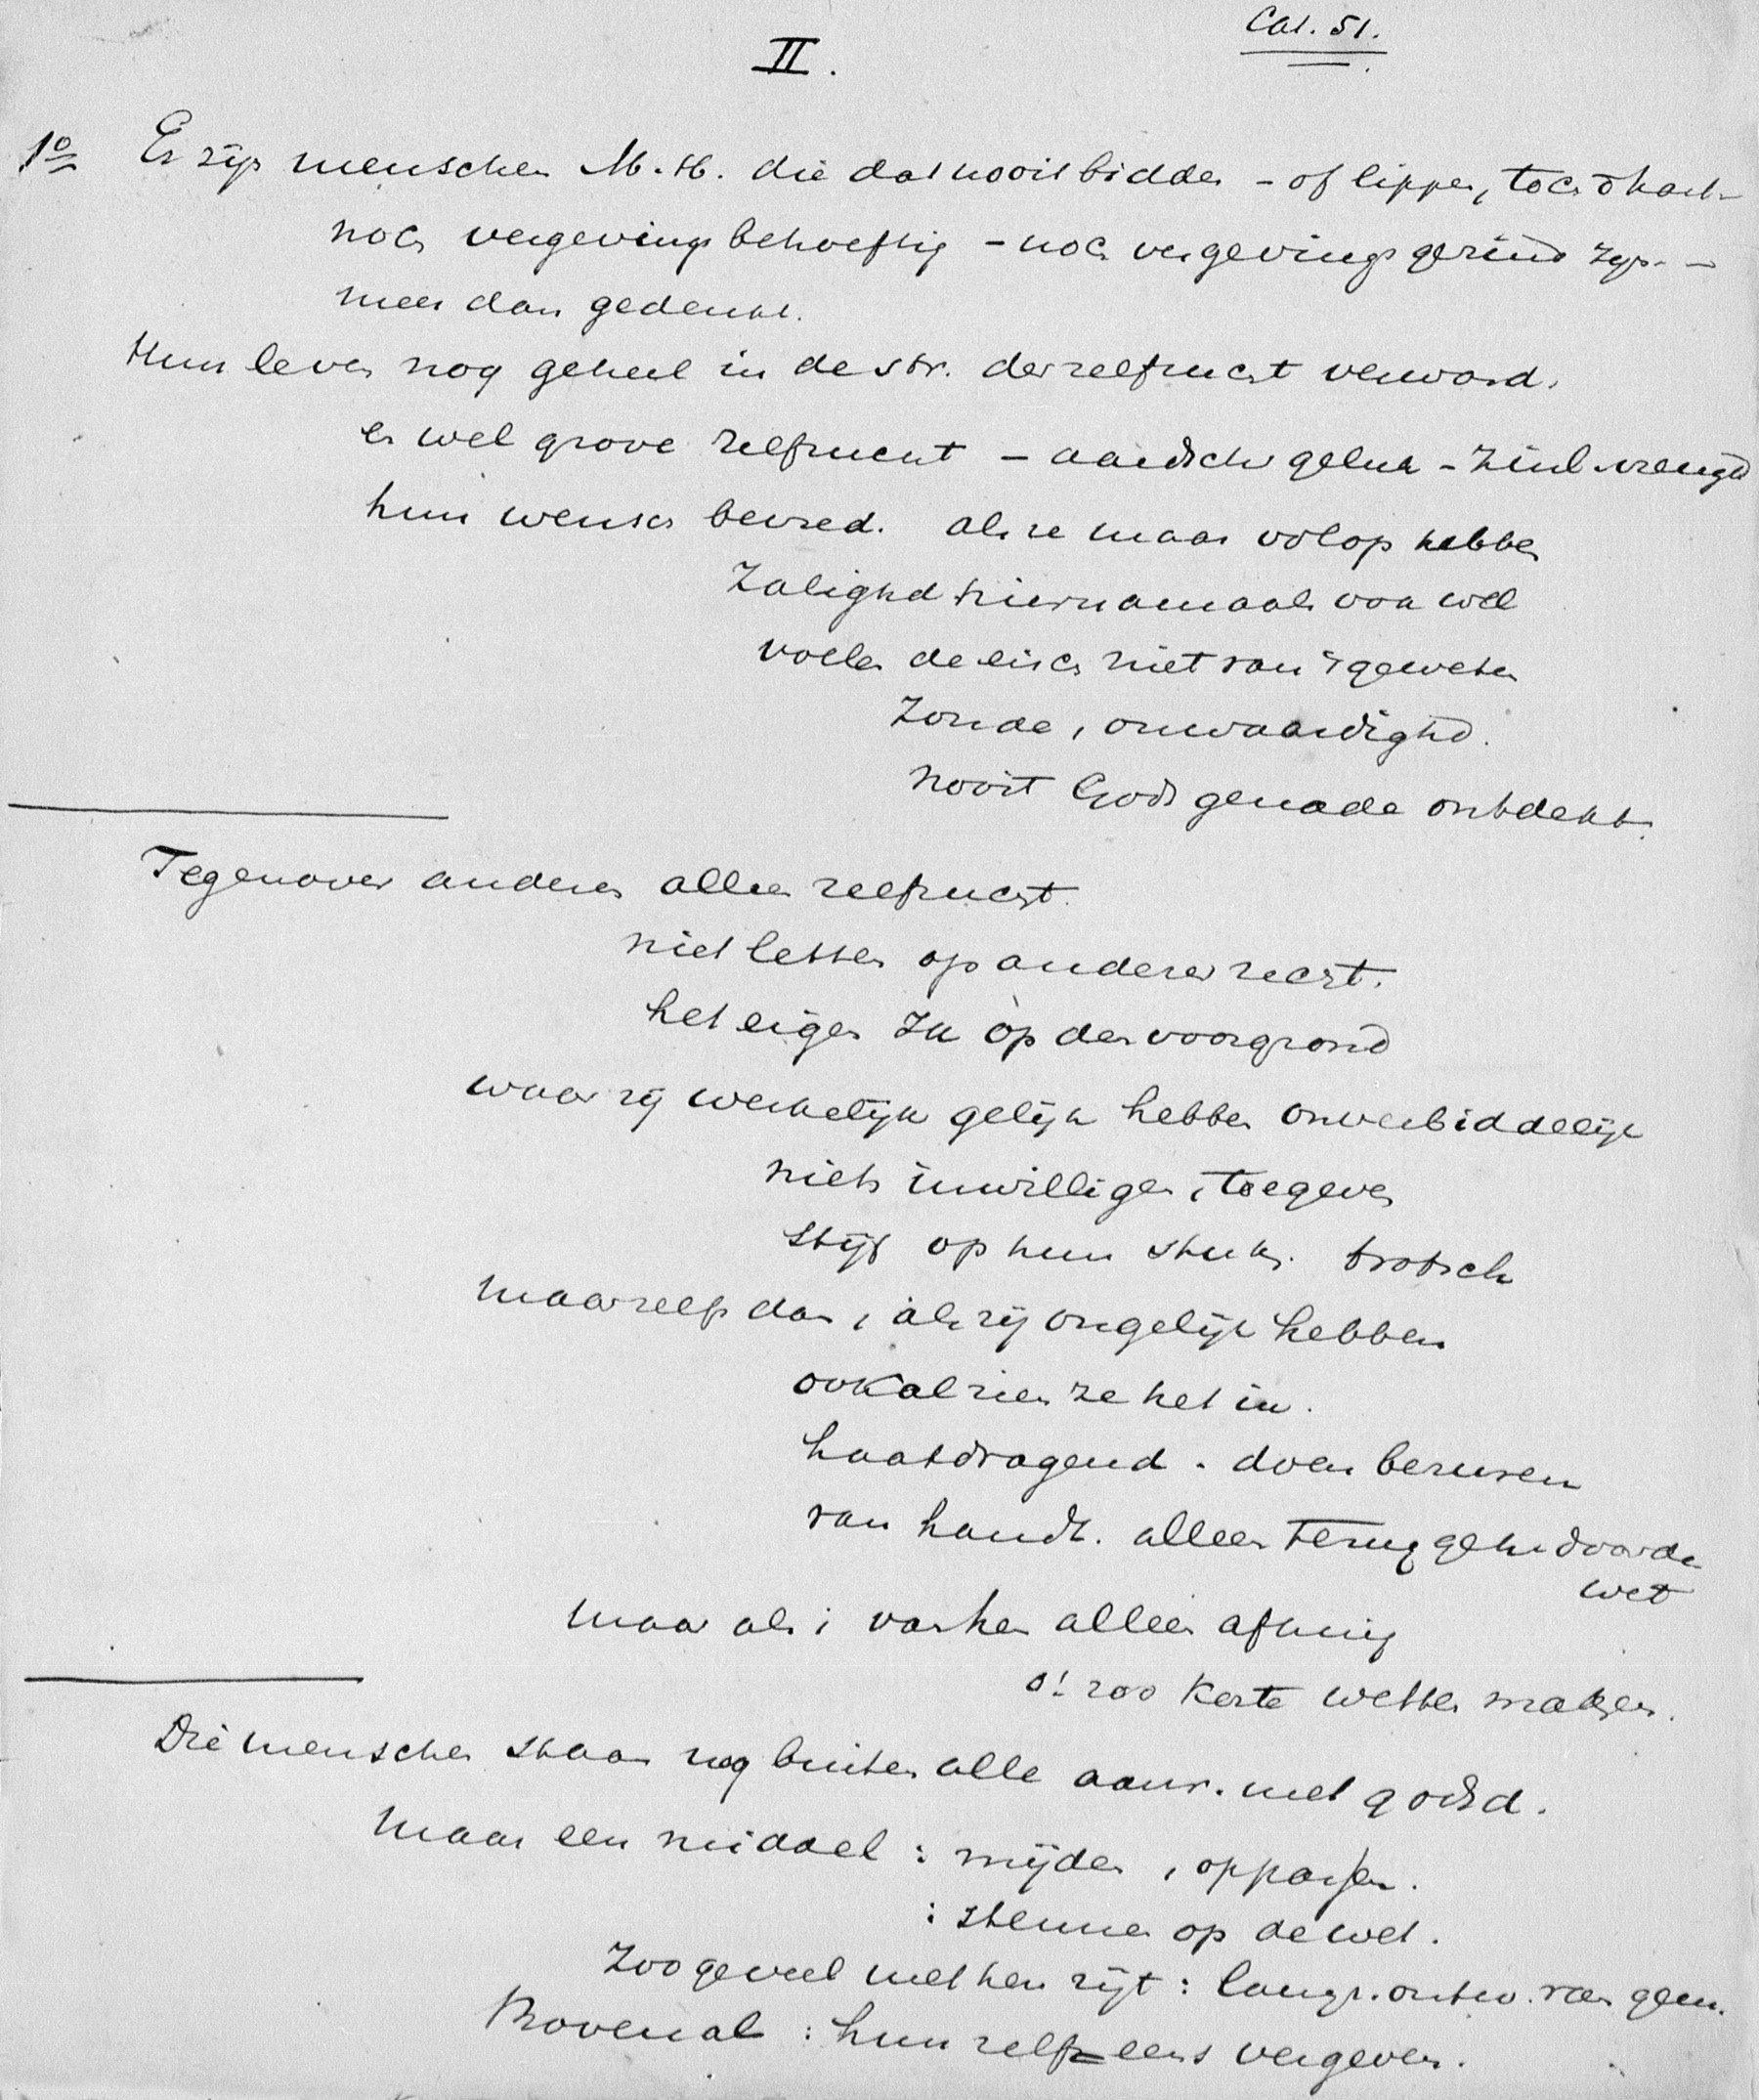 Cat. 51.
II.
1o Er zijn menschen M.H. die dat nooit bidden - of lippen, toch
noch vergevings behoeftig - noch vergevings gezind zijn -
meer dan gedenkt.
Hun leven nog geheel in de str. der zelfzucht verward.
en wel grove zelfzucht - aardsch geluk - zinl. vreugd
hun wensch bevred. als ze maar volop hebben
Zalighd hiernamaals ook wel
voelen de eisch niet van 't geweten
Zonde, onwaardighd.
nooit Gods genade ontdekt.
Tegenover anderen alleen zelfzucht.
niet letten op anderer recht.
het eigen Ik op den voorgrond
waar zij werkelijk gelijk hebben onverbiddelijk
niets inwilligen, toegeven
stijf op hun stuk. trotsch
maar zelfs dan, als zij ongelijk hebben
ook al zien ze het in.
haatdragend. doen
van handt. alleen terug geh. door de
wet
maar als 't van hen alleen afhing
o! zoo korte wetten maken.
Die menschen staan nog buiten alle aanr. met godsd.
maar een middel : mijden, oppassen.
: steunen op de wet.
Zoo geveel met hen zijt : langz. ontw. van gem.
Bovenal : hun zelfs eens vergeven.